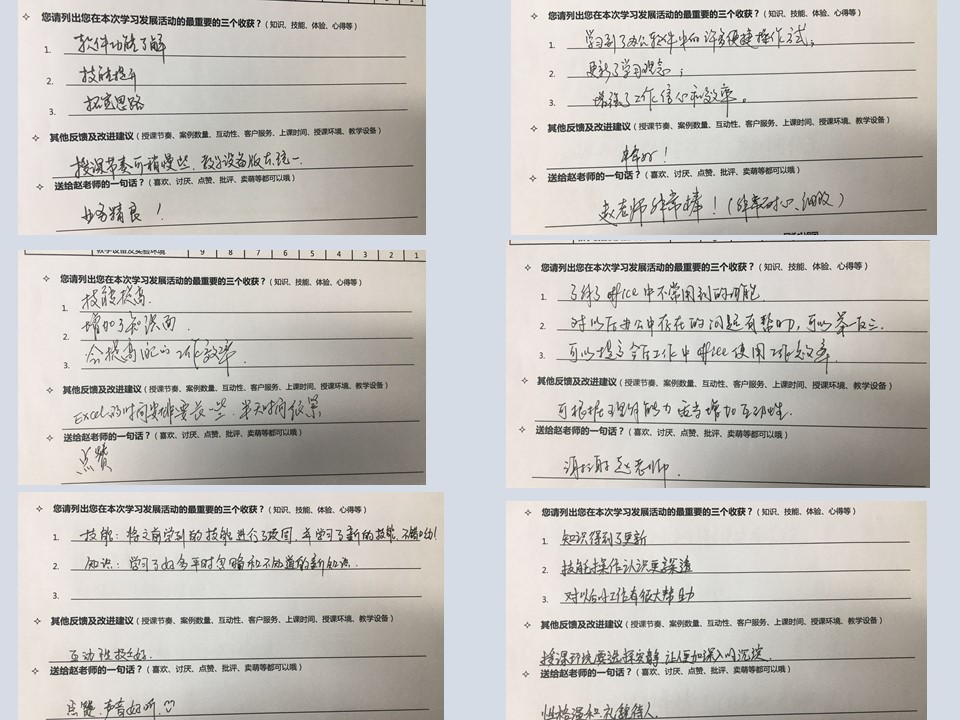 您请列出您在本次学习发展活动的最重要的三个收获？（知识、技能、体验、心得等）
1. 软件功能了解
2. 技能提升
3. 拓宽思路
其他反馈及改进建议（授课节奏、案例数量、互动性、客户服务、上课时间、授课环境、教学设备）
授课节奏可稍慢些，教学设备版本统一.
送给赵老师的一句话？（喜欢、讨厌、点赞、批评、卖萌等都可以哦）
业务精良！
您请列出您在本次学习发展活动的最重要的三个收获？（知识、技能、体验、心得等）
1. 学习到了办公软件中的许多便捷操作方式；
2. 更新了学习观念；
3. 增强了工作信心和效率。
其他反馈及改进建议（授课节奏、案例数量、互动性、客户服务、上课时间、授课环境、教学设备）
非常好！
送给赵老师的一句话？（喜欢、讨厌、点赞、批评、卖萌等都可以哦）
赵老师非常棒！（非常耐心、细致）
教学设备及实验环境 9 8 7 6 5 4 3 2 1
您请列出您在本次学习发展活动的最重要的三个收获？（知识、技能、体验、心得等）
1. 技能提高.
2. 增加了知识面.
3. 会提高我的工作效率.
其他反馈及改进建议（授课节奏、案例数量、互动性、客户服务、上课时间、授课环境、教学设备）
Excel的时间安排要长一些，半天时间
送给赵老师的一句话？（喜欢、讨厌、点赞、批评、卖萌等都可以哦）
点赞
您请列出您在本次学习发展活动的最重要的三个收获？（知识、技能、体验、心得等）
1. 了解了office中不常用到的功能.
2. 对以后办公中存在的问题有帮助，可以举一反三.
3. 可以提高今后工作中office使用工作效率.
其他反馈及改进建议（授课节奏、案例数量、互动性、客户服务、上课时间、授课环境、教学设备）
可根据理解能力适当增加互动性.
送给赵老师的一句话？（喜欢、讨厌、点赞、批评、卖萌等都可以哦）
谢谢赵老师.
您请列出您在本次学习发展活动的最重要的三个收获？（知识、技能、体验、心得等）
1. 技能：将之前学到的技能进行了巩固，并学习了新的技能，不错哟！
2. 知识：学习了好多平时忽略和不知道的新知识.
3.
其他反馈及改进建议（授课节奏、案例数量、互动性、客户服务、上课时间、授课环境、教学设备）
互动性较好.
送给赵老师的一句话？（喜欢、讨厌、点赞、批评、卖萌等都可以哦）
点赞，声音好听.
您请列出您在本次学习发展活动的最重要的三个收获？（知识、技能、体验、心得等）
1. 知识得到了更新
2. 技能操作认识更深透
3. 对以后的工作有很大帮助
其他反馈及改进建议（授课节奏、案例数量、互动性、客户服务、上课时间、授课环境、教学设备）
授课环境要选择安静，让更加深入的沉浸.
送给赵老师的一句话？（喜欢、讨厌、点赞、批评、卖萌等都可以哦）
性格温和，礼貌待人.